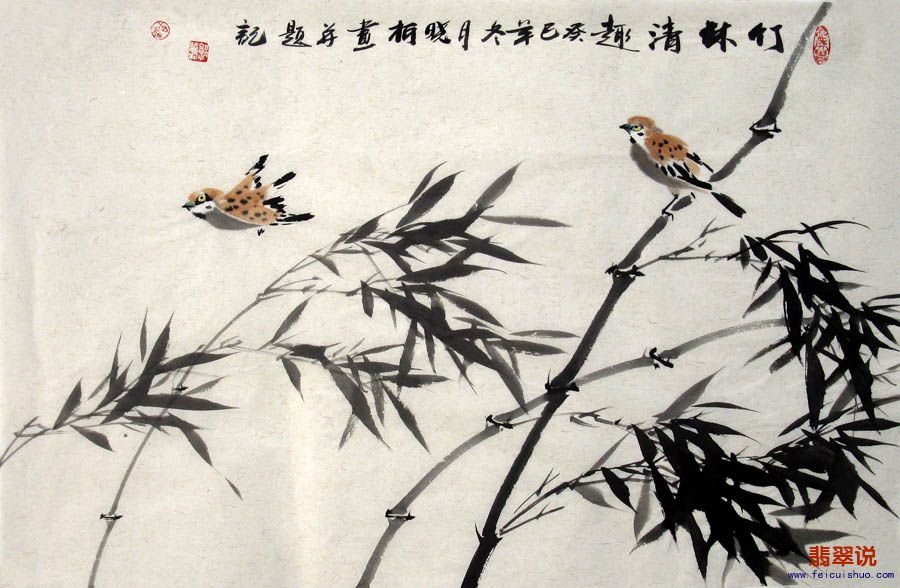 竹林清趣癸巳年冬月晓柯画并题记
翡翠说
www.feicuishuo.com